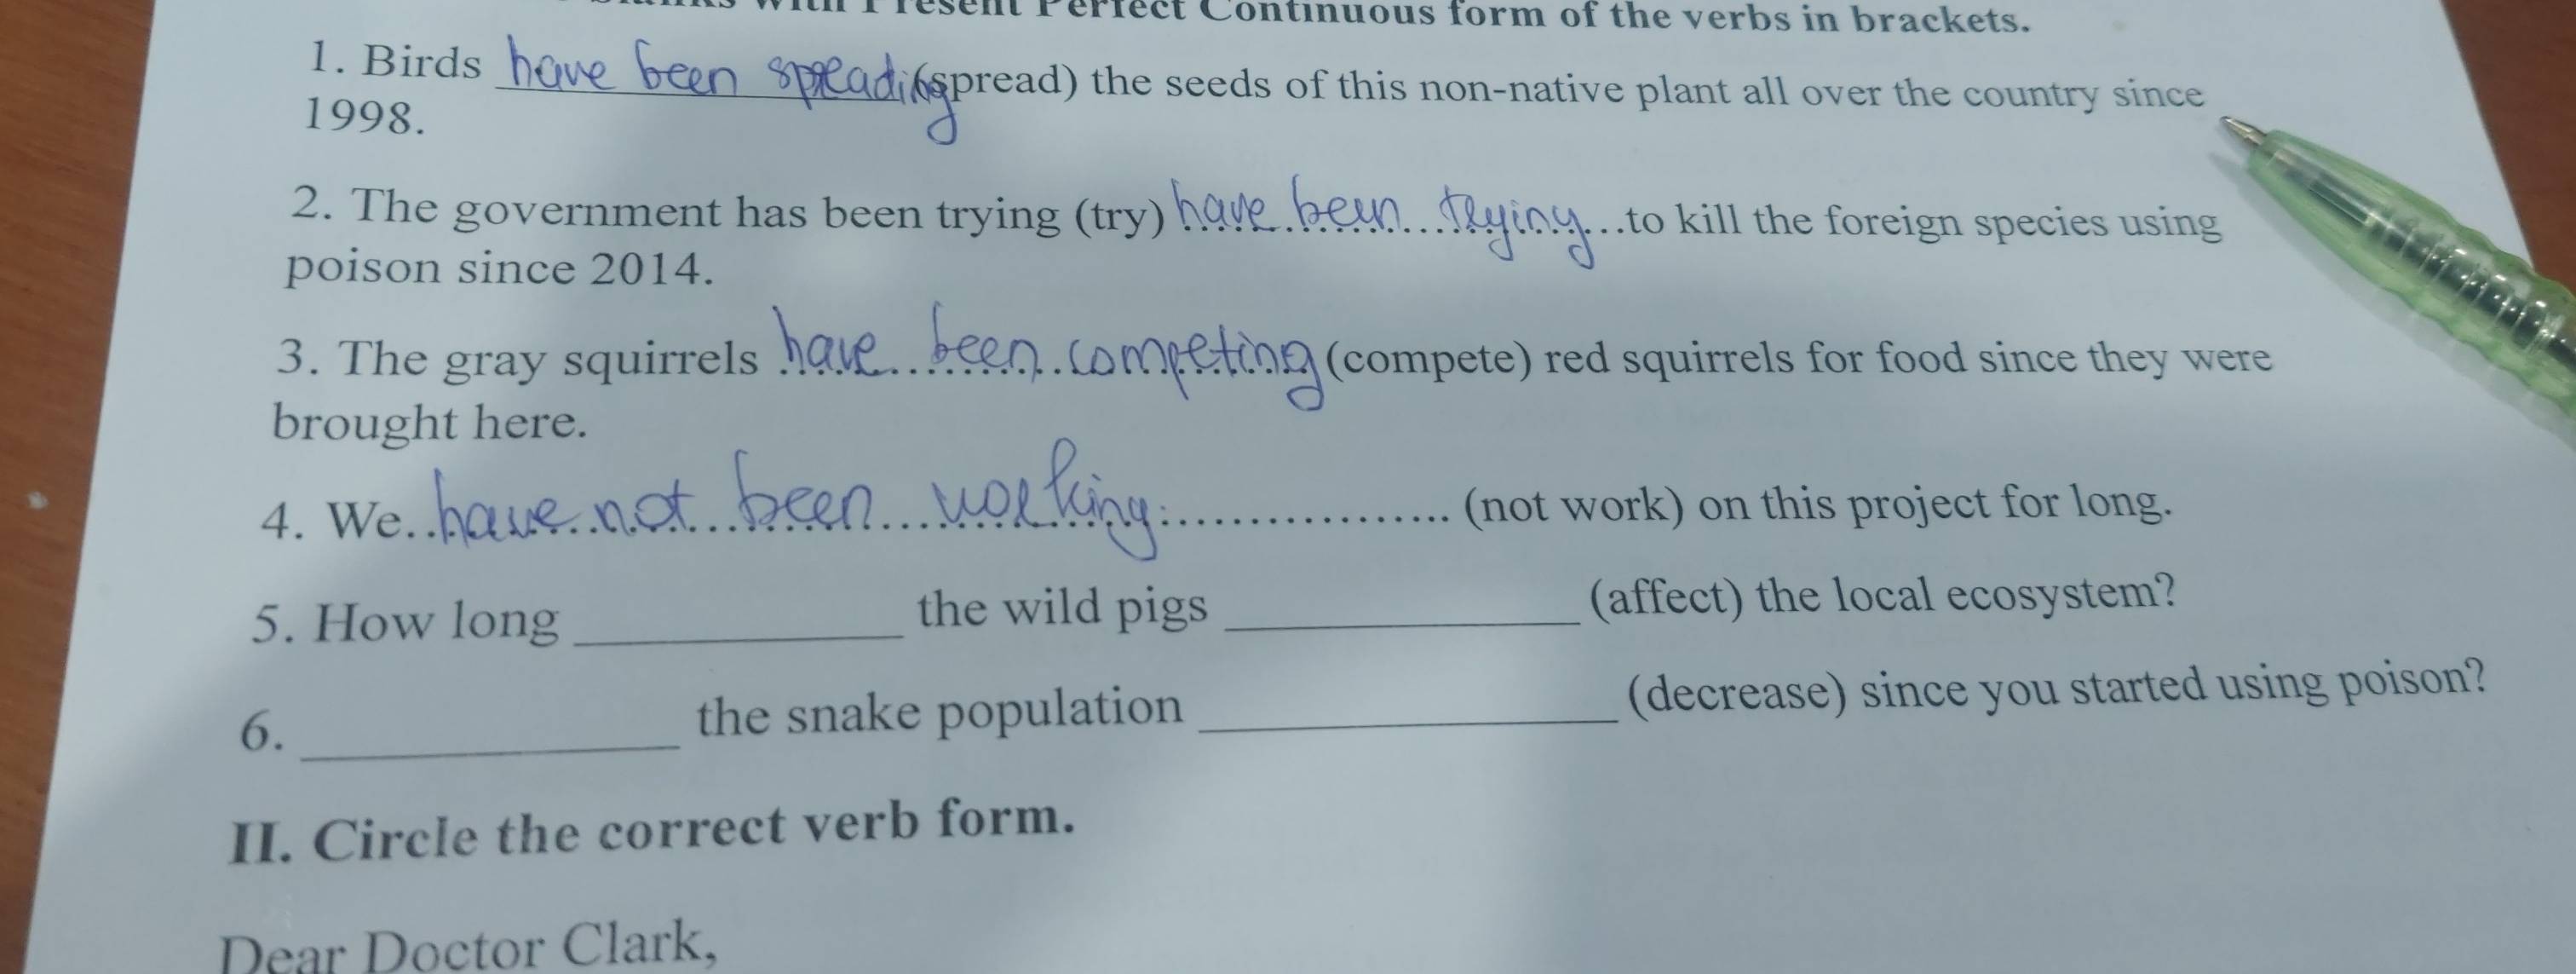 with Present Perfect Continuous form of the verbs in brackets.
1. Birds have been spreading (spread) the seeds of this non-native plant all over the country since
1998.
2. The government has been trying (try) have been trying to kill the foreign species using
poison since 2014.
3. The gray squirrels have been competing (compete) red squirrels for food since they were
brought here.
4. We have not been working (not work) on this project for long.
5. How long ____________ the wild pigs ____________ (affect) the local ecosystem?
6. ____________ the snake population ____________ (decrease) since you started using poison?
II. Circle the correct verb form.
Dear Doctor Clark,